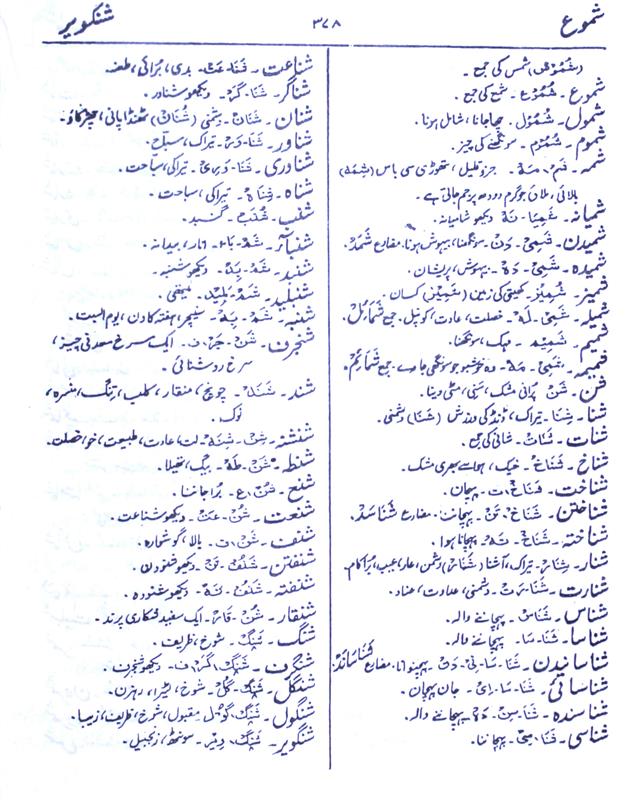 شموع ۳۷۸ شنگویر
(شُمُوس) شمس کی جمع ۔
شموع ۔ شُمُوع ۔ شمع کی جمع ۔
شمول ۔ شُمُول ۔ چھا جانا، شامل ہونا ۔
شموم ۔ شُمُوم ۔ سونگھنے کی چیز ۔
شمہ ۔ شَم ۔ مَہ ۔ جزو قلیل، تھوڑی سی باس (شِمَہ)
بالائی، ملائی جو گرم دودھ پر جم جاتی ہے ۔
شمیانہ ۔ شَمِیَا ۔ نَہ ۔ دیکھو شامیانہ ۔
شمیدن ۔ شَمِی ۔ دَن ۔ سونگھنا، بیہوش ہونا ۔ مضارع شَمَد ۔
شمیدہ ۔ شَمِی ۔ دَہ ۔ بیہوش، پریشان ۔
شمیز ۔ شُمِیز ۔ کھیتی کی زمین (شَمِیز) کسان ۔
شمیلہ ۔ شَمِی ۔ لَہ ۔ خصلت، عادت، کونپل ۔ جمع شَمَائِل ۔
شمیم ۔ شَمِیم ۔ مہک، سونگھنا ۔
شمیمہ ۔ شَمِی ۔ مَہ ۔ وہ خوشبو جو سونگھی جاوے ۔ جمع شَمَائِم ۔
شن ۔ شَن ۔ پرانی مشک، سَنی، مٹی دینا ۔
شنا ۔ شِنَا ۔ تیراک، ڈنڈ کی ورزش (شَنَا) دشمنی ۔
شنات ۔ شُنَات ۔ شانی کی جمع ۔
شناخ ۔ شَنَاخ ۔ خیک، ہوا سے بھری مشک ۔
شناخت ۔ شَنَاخ، ت ۔ پہچان ۔
شناختن ۔ شَنَاخ ۔ تَن ۔ پہچاننا ۔ مضارع شَنَاسَد ۔
شناختہ ۔ شَنَاخ ۔ تَہ ۔ پہچانا ہوا ۔
شنار ۔ شِنَار ۔ تیراک، آشنا (شَنَار) دشمن، عار، عیب، بُرا کام ۔
شنارت ۔ شَنَا ۔ رَت ۔ دشمنی، عداوت، عناد ۔
شناس ۔ شَنَاس ۔ پہچاننے والہ ۔
شناسا ۔ شَنَا ۔ سَا ۔ پہچاننے والہ ۔
شناسانیدن ۔ شَنَا ۔ سَا ۔ نِی ۔ دَن ۔ پہچنوانا ۔ مضارع شَنَاسَانَد ۔
شناسائی ۔ شَنَا ۔ سَا ۔ اِی ۔ جان پہچان ۔
شناسندہ ۔ شَنَا ۔ سِن ۔ دَہ ۔ پہچاننے والہ ۔
شناسی ۔ شَنَا ۔ سِی ۔ پہچاننا ۔
شناعت ۔ شَنَا ۔ عَت ۔ بدی، بُرائی، طعنہ
شناگر ۔ شَنَا ۔ گَر ۔ دیکھو شناور ۔
شنان ۔ شَنَان ۔ دشمنی (شُنَان) ٹھنڈا پانی، چھڑکاؤ ۔
شناور ۔ شَنَا ۔ وَر ۔ تیراک، سبّاح ۔
شناوری ۔ شَنَا ۔ وَرِی ۔ تیراکی، سباحت ۔
شناہ ۔ شِنَاہ ۔ تیراکی، سباحت ۔
شنب ۔ شُنَب ۔ گنبد ۔
شنبار ۔ شَم ۔ بَار ۔ انار، بیدانہ ۔
شنبد ۔ شَم ۔ بَد ۔ دیکھو شنبہ ۔
شنبلید ۔ شَم ۔ بَلِید ۔ میتھی ۔
شنبہ ۔ شَم ۔ بَہ ۔ سنیچر، ہفتہ کا دن، یوم السبت ۔
شنجرف ۔ شَن ۔ جَر، ف ۔ ایک سرخ معدنی چیز،
سرخ روشنائی ۔
شند ۔ شَند ۔ چونچ، منقار، کلب، ترنگ، ہنسرہ،
نوک ۔
شنشنہ ۔ شِن ۔ شِنَہ ۔ لت، عادت، طبیعت، خو، خصلت ۔
شنطہ ۔ شَن ۔ طَہ ۔ بیگ، تھیلا ۔
شنع ۔ شَن، ع ۔ بُرا جاننا ۔
شنعت ۔ شُن ۔ عَت ۔ دیکھو شناعت ۔
شنف ۔ شَن، ف ۔ بالا، گوشوارہ ۔
شنفتن ۔ شَنُف ۔ تَن ۔ دیکھو شنودن ۔
شنفتہ ۔ شَنُف ۔ تَہ ۔ دیکھو شنودہ ۔
شنقار ۔ شُن ۔ قَار ۔ ایک سفید شکاری پرند ۔
شنگ ۔ شَنگ ۔ شوخ، ظریف ۔
شنگرف ۔ شَنگ، گَر، ف ۔ دیکھو شنجرف ۔
شنگل ۔ شَنگ ۔ گُل ۔ شوخ، لٹیرا، رہزن ۔
شنگول ۔ شَنگ، گُول، مقبول، شوخ، ظریف، زیبا ۔
شنگویر ۔ شَنگ، وِیر ۔ سونٹھ، زنجبیل ۔